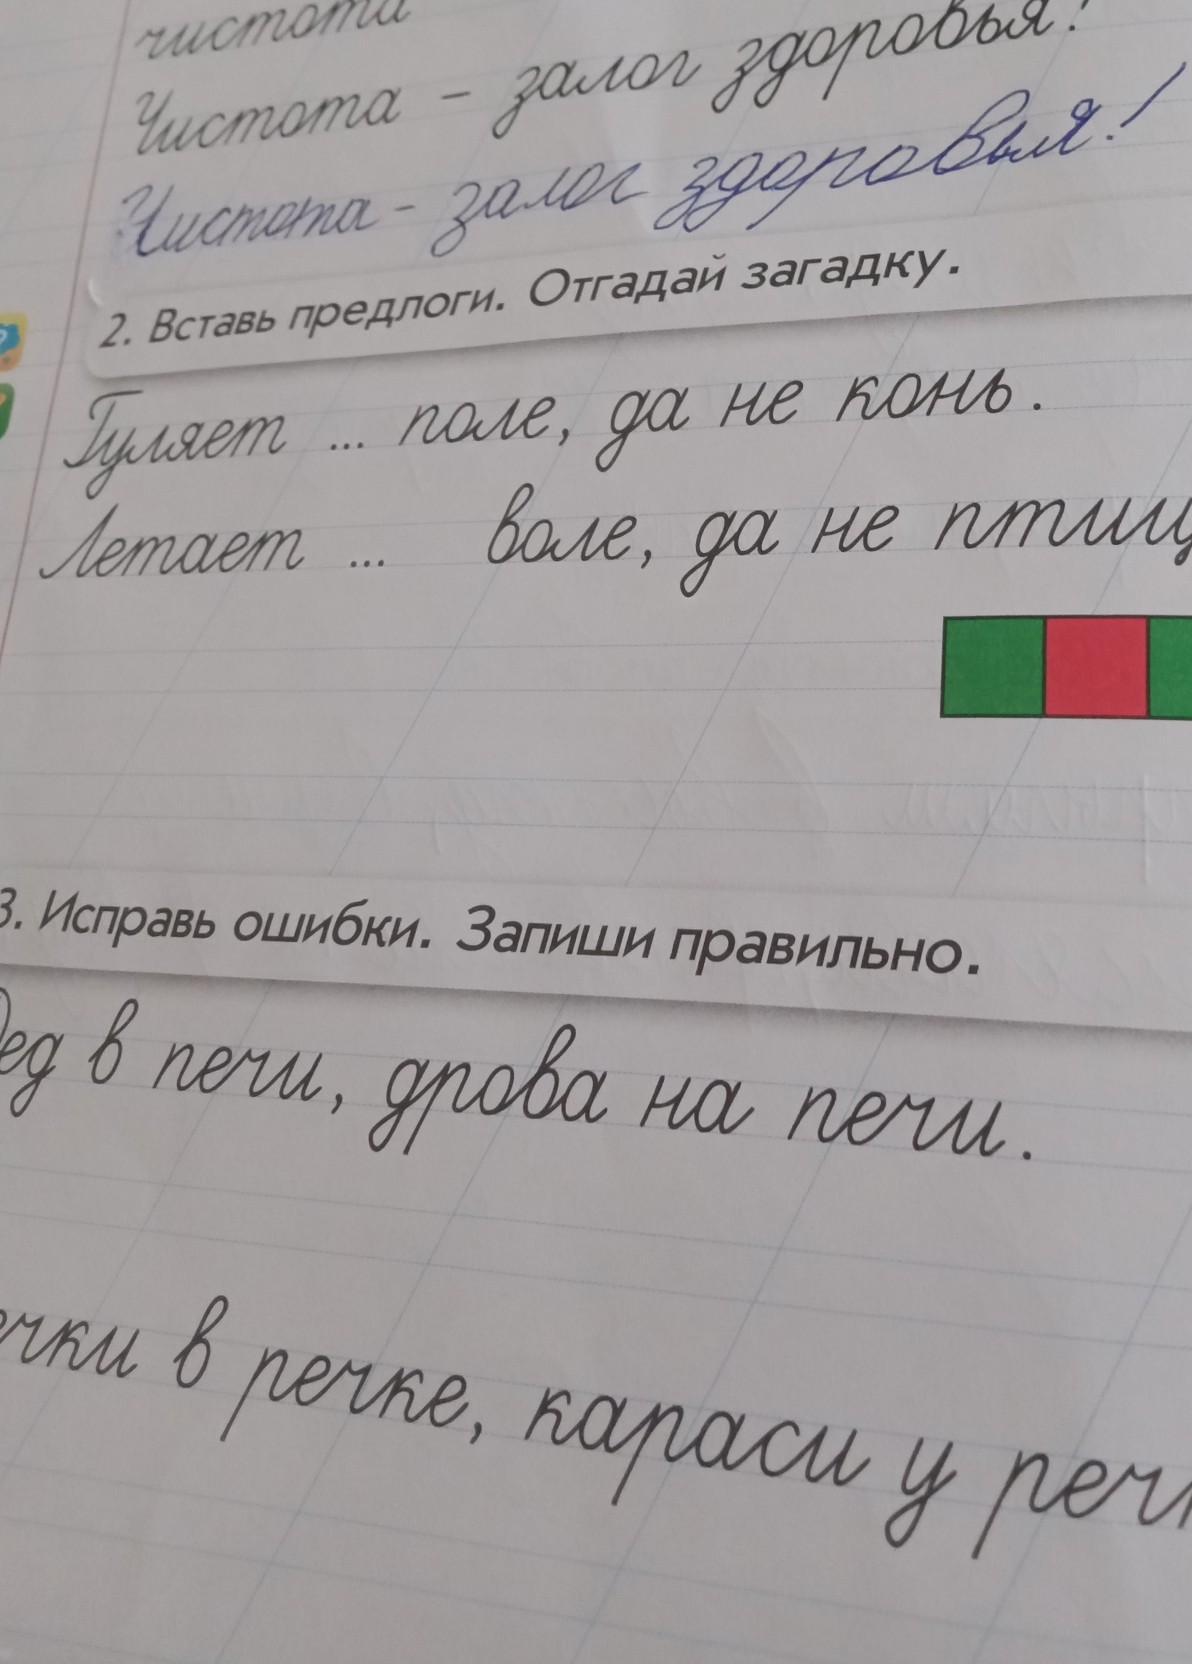 чистота
Чистота - залог здоровья!
Чистота - залог здоровья!
2. Вставь предлоги. Отгадай загадку.
Гуляет ... поле, да не конь.
Летает ... воле, да не птиц
3. Исправь ошибки. Запиши правильно.
Дед в печи, дрова на печи.
ечки в речке, караси у реч